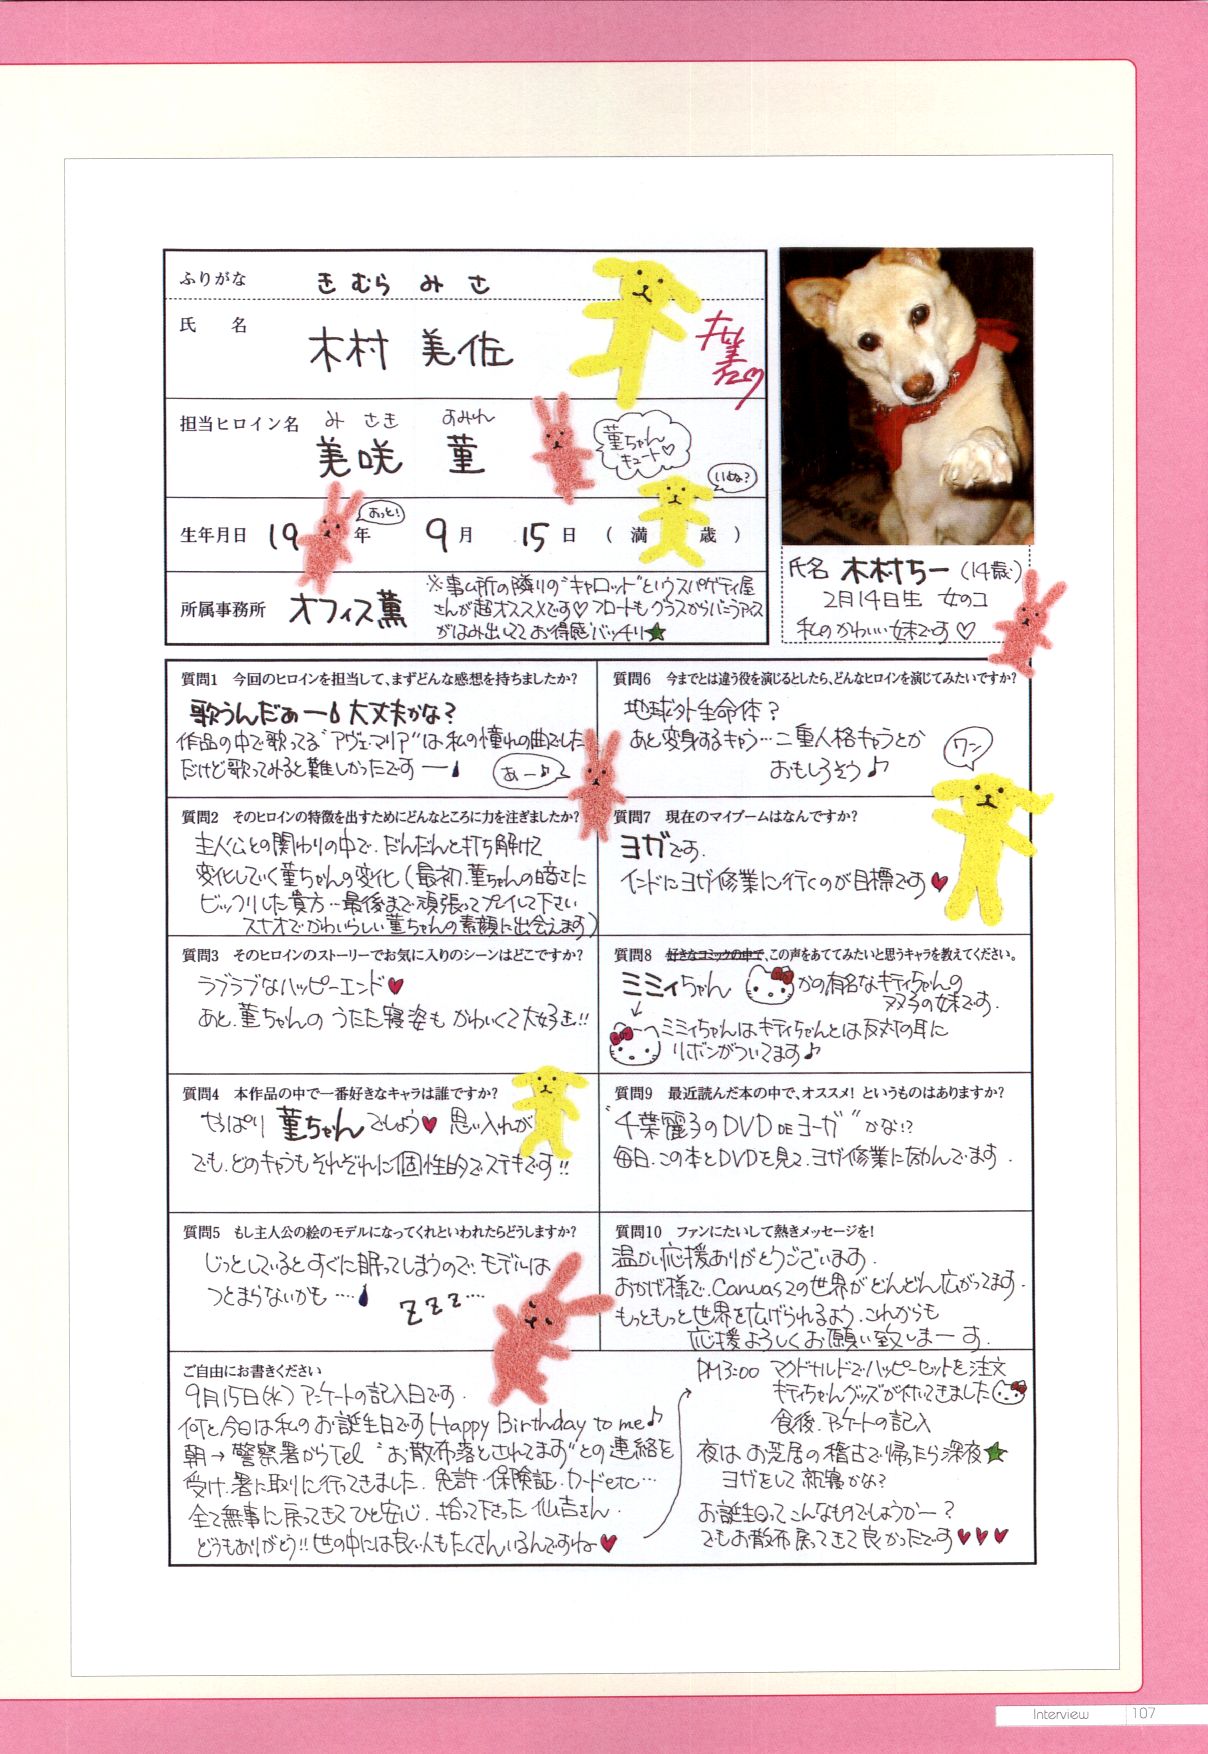 ふりがな きむら みさ
氏 名 木村 美佐
担当ヒロイン名 美咲 菫
み さき すみれ
菫ちゃん
キュート♡
いぬ?
生年月日 19 年 9月 15日 ( 満 歳 )
おっと!
所属事務所 オフィス薫
※事ム所の隣りの"キャロット"というスパゲティ屋
さんが超オススメです♡フロートもグラスからバニラアイス
がはみ出してて お得感バッチリ★
氏名 木村ちー (14歳)
2月14日生 女のコ
私のかわいい妹です♡
質問1 今回のヒロインを担当して、まずどんな感想を持ちましたか?
歌うんだぁー 大丈夫かな?
作品の中で歌ってる"アヴェ・マリア"は私の憧れの曲でした
だけど歌ってみると難しかったですー
あー♪
質問2 そのヒロインの特徴を出すためにどんなところに力を注ぎましたか?
主人公との関わりの中で、だんだんと打ち解けて
変化していく菫ちゃんの変化(最初、菫ちゃんの暗さに
ビックリした貴方…最後まで頑張ってプレイして下さい
スナオでかわいらしい菫ちゃんの素顔に出会えます)
質問3 そのヒロインのストーリーでお気に入りのシーンはどこですか?
ラブラブなハッピーエンド♥
あと、菫ちゃんの うたた寝姿も かわいくて大好き!!
質問4 本作品の中で一番好きなキャラは誰ですか?
やっぱり 菫ちゃんでしょう♥ 思い入れが
でも、どのキャラもそれぞれに個性的でステキです!!
質問5 もし主人公の絵のモデルになってくれといわれたらどうしますか?
じっとしているとすぐに眠ってしまうので、モデルは
つとまらないかも ‥‥
ZZZ‥‥
質問6 今までとは違う役を演じるとしたら、どんなヒロインを演じてみたいですか?
地球外生命体?
あと変身するキャラ…二重人格キャラとか
おもしろそう♪
ワン
質問7 現在のマイブームはなんですか?
ヨガです.
インドにヨガ修業に行くのが目標です♥
質問8 好きなコミックの中で、この声をあててみたいと思うキャラを教えてください。
ミミィちゃん かの有名なキティちゃんの
フタ子の妹です.
ミミィちゃんはキティちゃんとは反対の耳に
リボンがついてます♪
質問9 最近読んだ本の中で、オススメ! というものはありますか?
"千葉麗子のDVD DE ヨーガ"かな!?
毎日、この本とDVDを見て、ヨガ修業に励んでます.
質問10 ファンにたいして熱きメッセージを!
温かい応援ありがとうございます.
おかげ様で、Canvas2の世界がどんどん広がってます.
もっともっと世界を広げられるよう、これからも
応援よろしくお願い致しまーす.
ご自由にお書きください
9月15日(水) アンケートの記入日です.
何と、今日は私のお誕生日です Happy Birthday to me♪
朝→警察署からTel "お散布落とされてます"との連絡を
受け、署に取りに行ってきました. 免許・保険証・カードetc…
全て無事に戻ってきてひと安心. 拾って下さった仙吉さん.
どうもありがとう!! 世の中には良い人もたくさんいるんですね♥
PM3:00 マクドナルドでハッピーセットを注文
キティちゃんグッズが付いてきました
食後、アンケートの記入
夜は お芝居の稽古で帰ったら深夜★
ヨガをして就寝かな?
お誕生日ってこんなものでしょうかー?
でもお散布戻ってきて良かったです♥♥♥
Interview 107